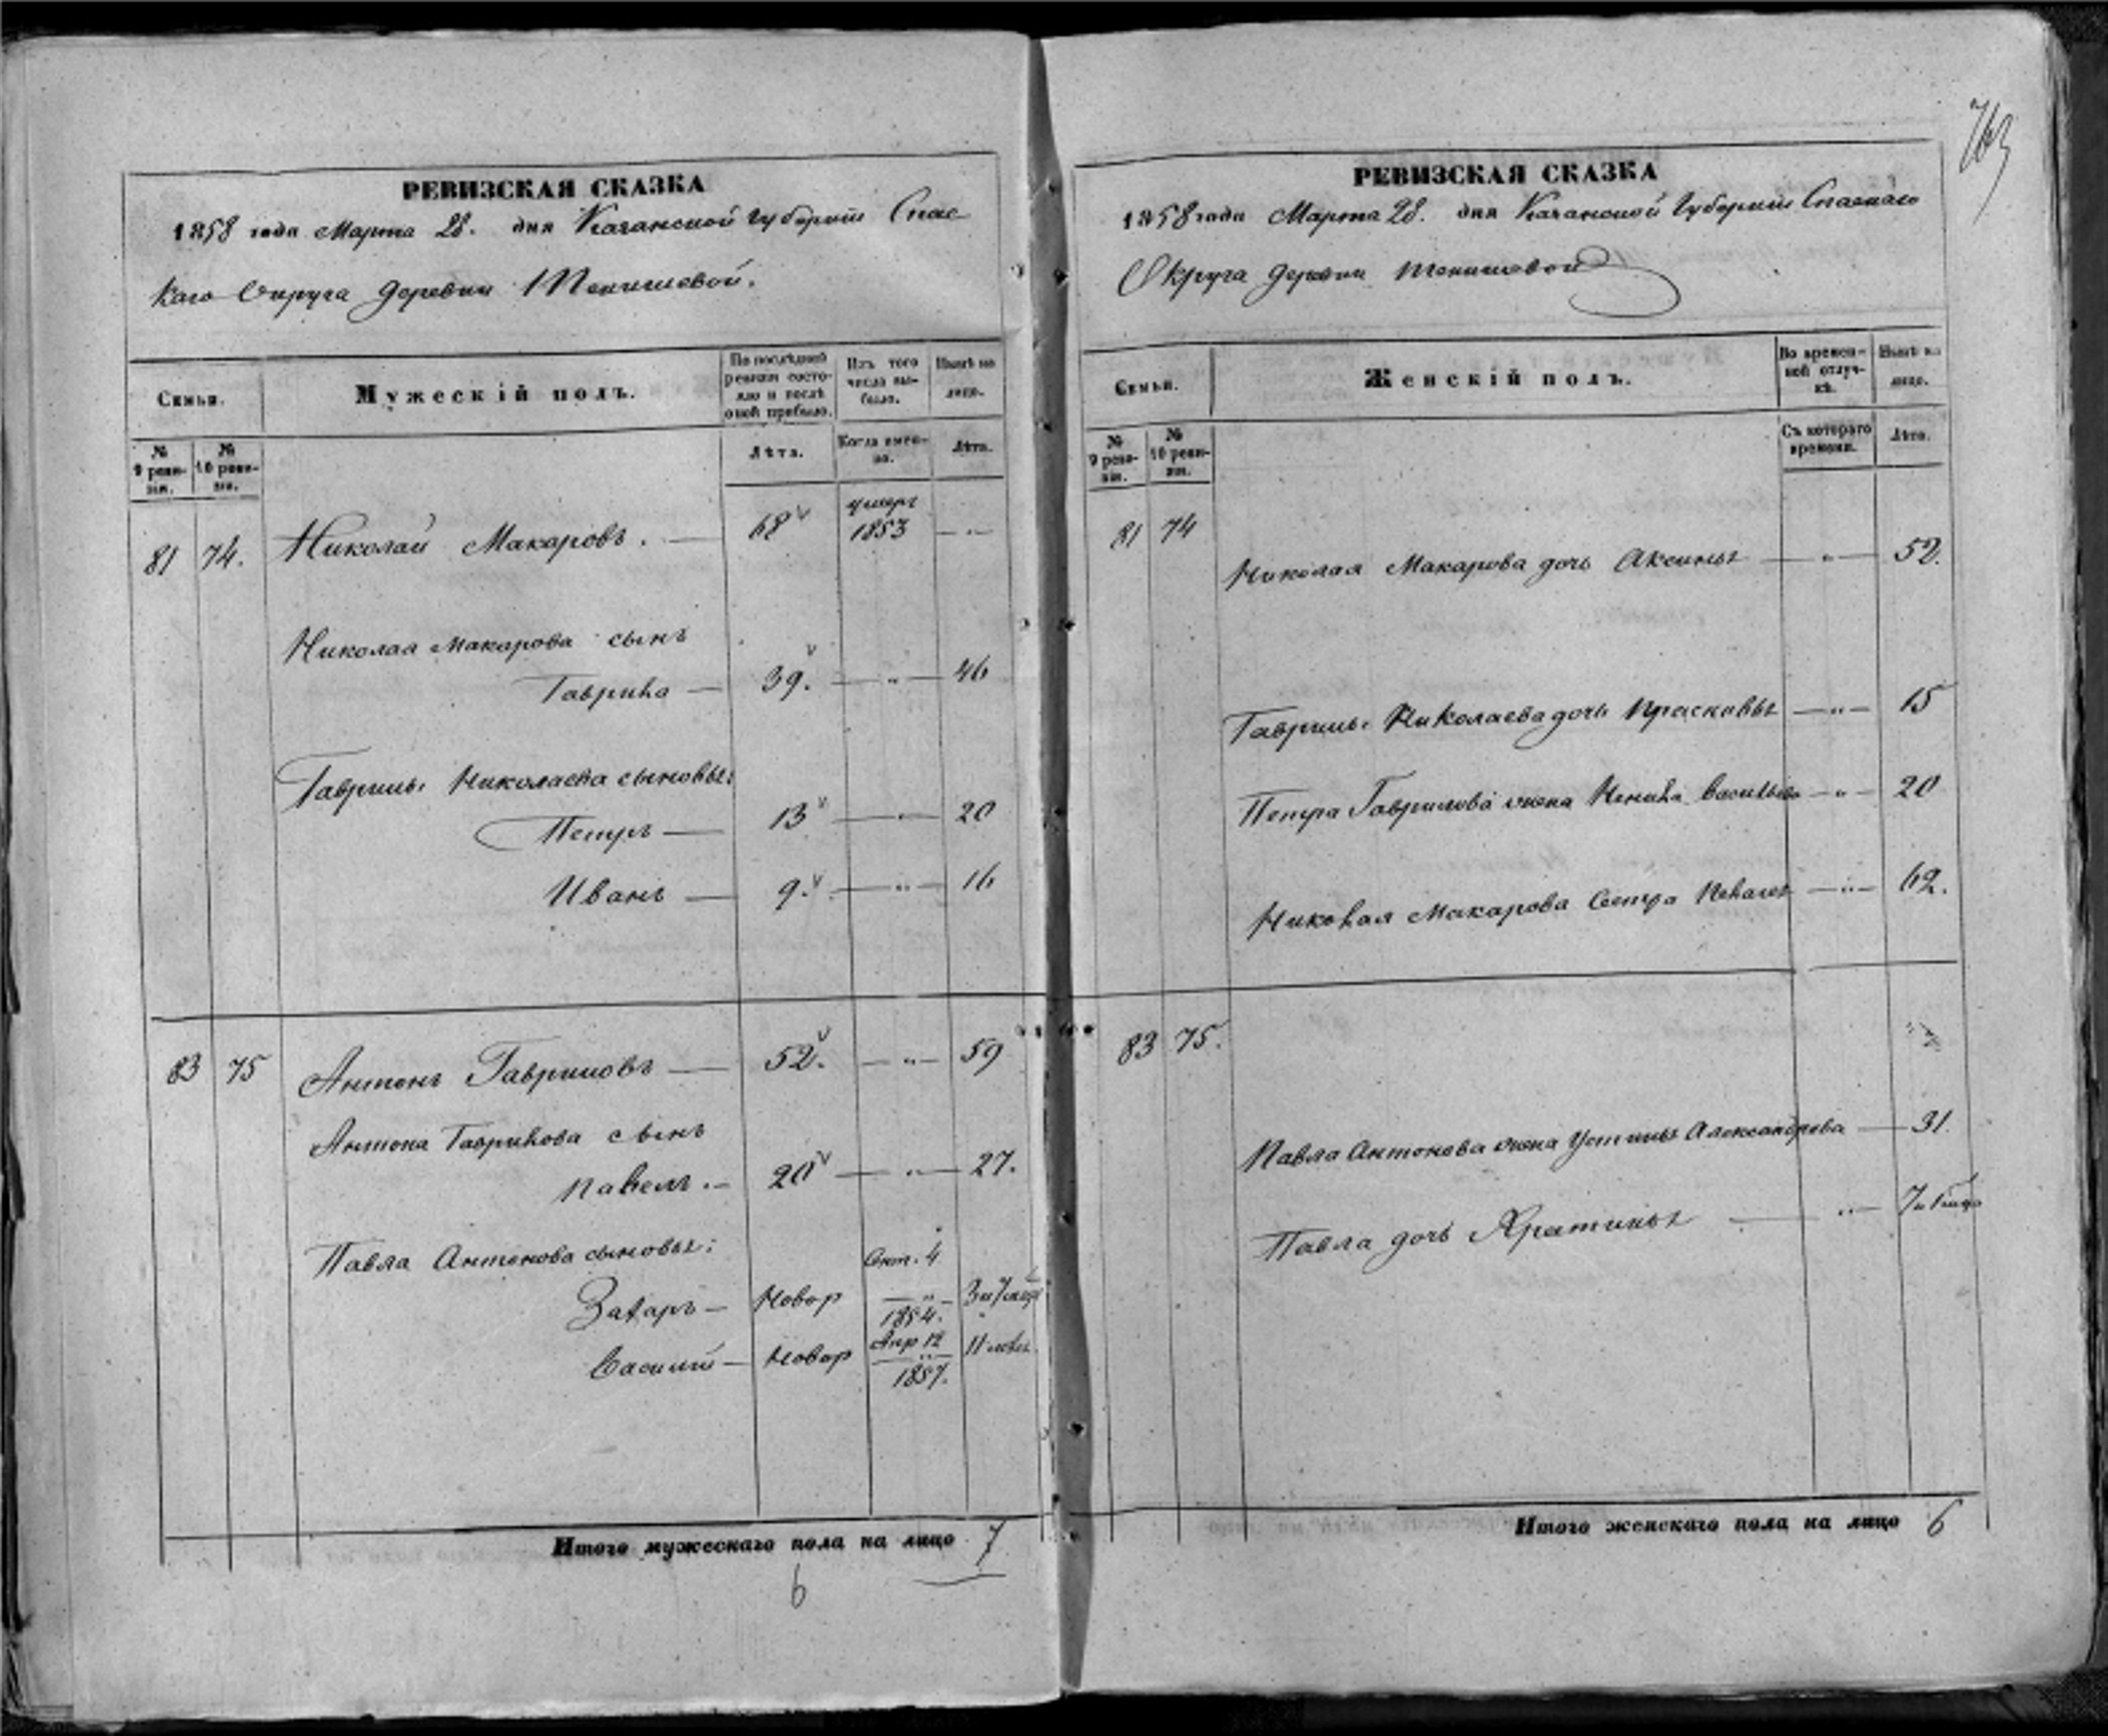 763
РЕВИЗСКАЯ СКАЗКА
1858 года Марта 28. дня Казанской Губернии Спас
каго Округа деревни Тенишевой.
Семьи.
Мужескій полъ.
По послѣдней ревизіи состояло и послѣ оной прибыло.
Изъ того числа выбыло.
Нынѣ на лицо.
№ 9 ревизіи.
№ 10 ревизіи.
Лѣта.
Когда именно.
Лѣта.
81 74. Николай Макаровъ. — 68 умеръ 1853 — " —
Николая Макарова сынъ
Гаврила — 39. — " — 46
Гаврилы Николаева сыновья:
Петръ — 13 — " — 20
Иванъ — 9. — " — 16
83 75 Антонъ Гавриловъ — 52. — " — 59
Антона Гаврилова сынъ
Павелъ. — 20 — " — 27.
Павла Антонова сыновья:
Захаръ — Новор Окт. 4 1854. 3 и 7 мѣся
Василий — Новор Апр 12 1857. 11 мѣся.
Итого мужескаго пола на лицо 7
6
РЕВИЗСКАЯ СКАЗКА
1858 года Марта 28. дня Казанской Губернии Спаскаго
Округа деревни Тенишевой
Семьи.
Женскій полъ.
Во временной отлучкѣ.
Нынѣ на лицо.
№ 9 ревизіи.
№ 10 ревизіи.
Съ котораго времени.
Лѣта.
81 74
Николая Макарова дочь Аксинья — " — 52.
Гаврилы Николаева дочь Прасковья — " — 15
Петра Гаврилова жена Ненила Васильева — " — 20
Николая Макарова Сестра Пелагея — " — 62.
83 75.
Павла Антонова жена Устинья Александрова — 31.
Павла дочь — " — 7
Итого женскаго пола на лицо 6